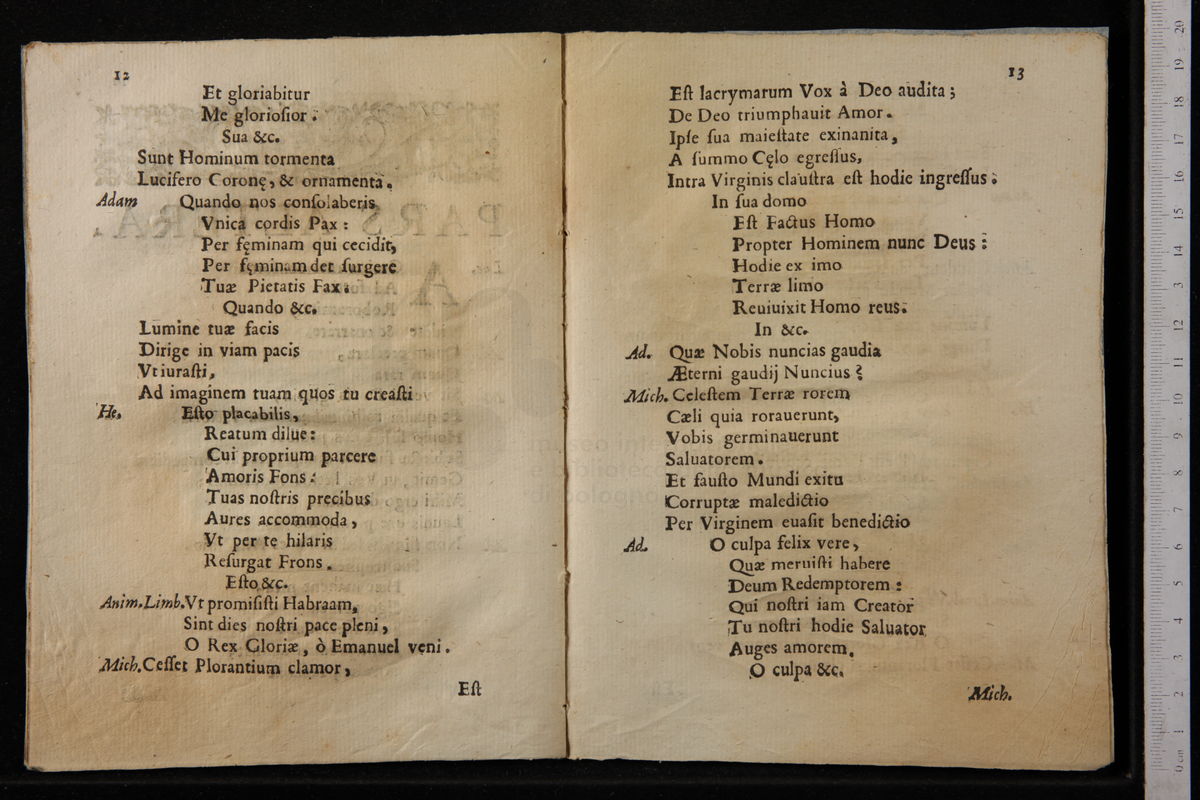 12
Et gloriabitur
Me gloriosior.
Sua &c.
Sunt Hominum tormenta
Lucifero Coronę, & ornamenta.
Adam Quando nos consolaberis
Vnica cordis Pax:
Per fęminam qui cecidit,
Per fęminam det surgere
Tuæ Pietatis Fax.
Quando &c.
Lumine tuæ facis
Dirige in viam pacis
Vt iurasti,
Ad imaginem tuam quos tu creasti
He. Esto placabilis,
Reatum dilue:
Cui proprium parcere
Amoris Fons:
Tuas nostris precibus
Aures accommoda,
Vt per te hilaris
Resurgat Frons.
Esto &c.
Anim. Limb. Vt promisisti Habraam,
Sint dies nostri pace pleni,
O Rex Gloriæ, ò Emanuel veni.
Mich. Cesset Plorantium clamor,
Est
13
Est lacrymarum Vox à Deo audita;
De Deo triumphauit Amor.
Ipse sua maiestate exinanita,
A summo Cęlo egressus,
Intra Virginis claustra est hodie ingressus:
In sua domo
Est Factus Homo
Propter Hominem nunc Deus:
Hodie ex imo
Terræ limo
Reuiuixit Homo reus.
In &c.
Ad. Quæ Nobis nuncias gaudia
Æterni gaudij Nuncius?
Mich. Celestem Terræ rorem
Cæli quia rorauerunt,
Vobis germinauerunt
Saluatorem.
Et fausto Mundi exitu
Corruptæ maledictio
Per Virginem euasit benedictio
Ad. O culpa felix vere,
Quæ meruisti habere
Deum Redemptorem:
Qui nostri iam Creator
Tu nostri hodie Saluator
Auges amorem.
O culpa &c.
Mich.